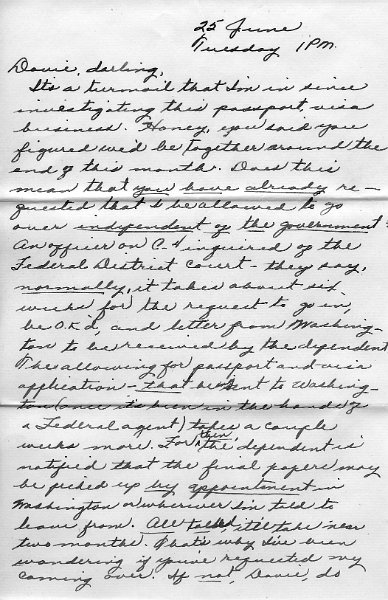 25 June
Tuesday 1 P.M.
Davie, darling,
It's a turmoil that I'm in since
investigating this passport, visa
business. Honey, you said you
figured we'd be together around the
end of this month. Does this
mean that you have already re-
quested that I be allowed to go
over independent of the government?
An officer on C. inquired of the
Federal District Court - they say,
normally, it takes about six
weeks for the request to go in,
be O.K.'d, and letter from Washing-
ton to be received by the dependent.
The allowing for passport and visa
application - that being sent to Washing-
ton (once it's been in the hands of
a Federal agent) takes a couple
weeks more. For then the dependent is
notified that the final papers may
be picked up by appointment in
Washington or wherever I'm told to
leave from. All told it'll take near
two months. That's why I've been
wondering if you've requested my
coming over. If not, Davie, do